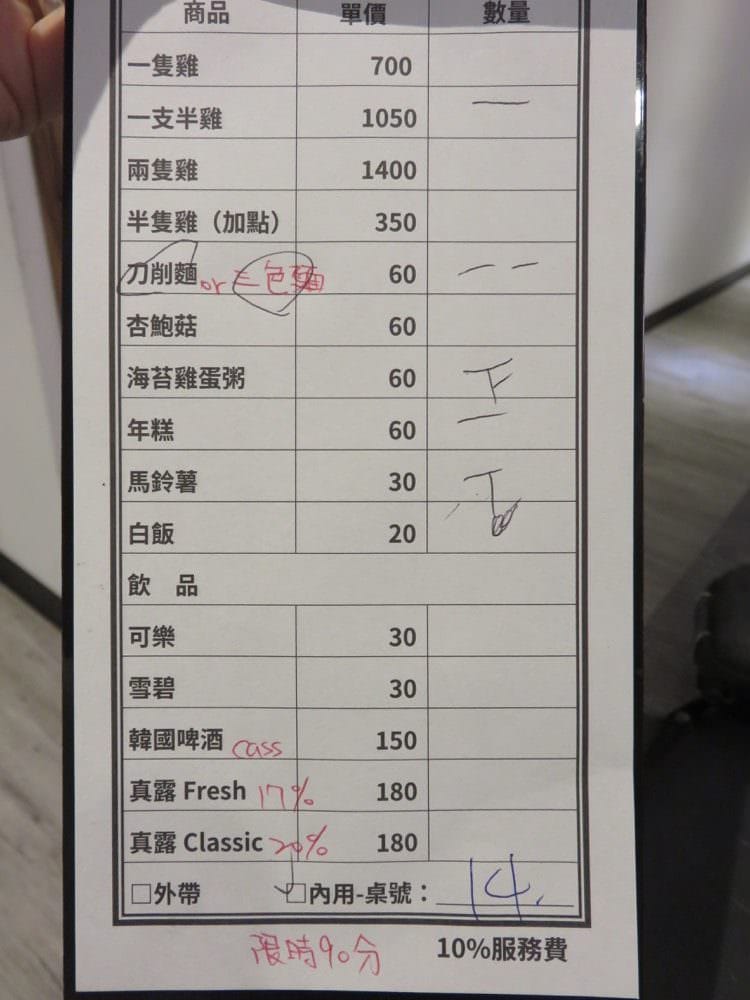 商品 單價 數量
一隻雞 700
一支半雞 1050 一
兩隻雞 1400
半隻雞（加點） 350
刀削麵 or 三色麵 60 一 一
杏鮑菇 60
海苔雞蛋粥 60 下
年糕 60 一
馬鈴薯 30
白飯 20
飲品
可樂 30
雪碧 30
韓國啤酒 cass 150
真露 Fresh 17% 180
真露 Classic 20% 180
□外帶 □內用-桌號： 14.
限時90分 10%服務費